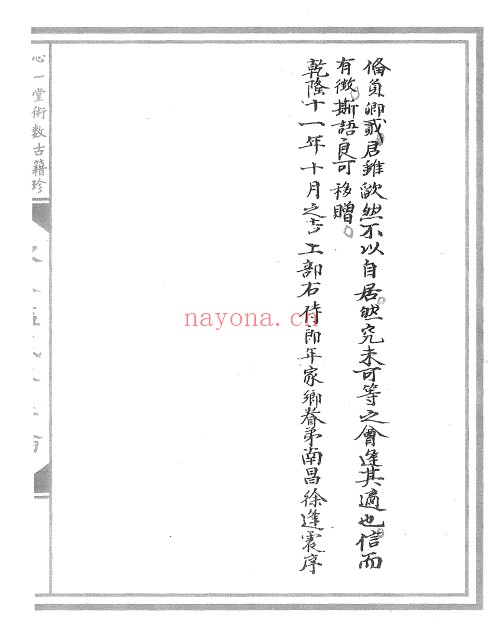 備員卿貳居雖欿然不以自居然究未可等之會逢其適也信而
有徵斯語良可移贈
乾隆十一年十月之吉工部右侍郎年家鄉眷弟南昌徐逢震序
心一堂術數古籍珍
nayona.cn